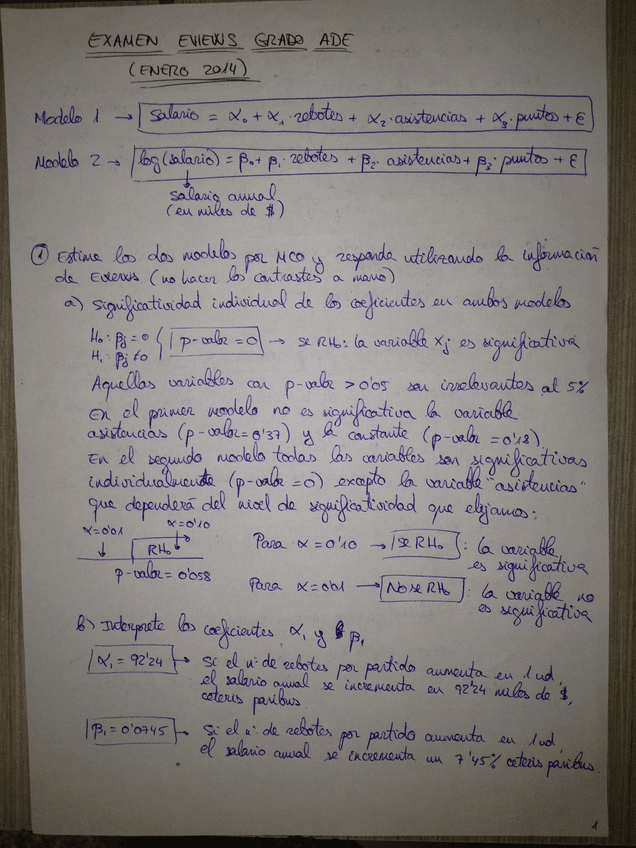 EXAMEN EVIEWS GRADO ADE
(ENERO 2014)
Modelo 1 → Salario = α₀ + α₁·rebotes + α₂·asistencias + α₃·puntos + ε
Modelo 2 → log(salario) = β₀ + β₁·rebotes + β₂·asistencias + β₃·puntos + ε
salario anual
(en miles de $)
① Estime los dos modelos por MCO y responda utilizando la información
de Eviews (no hacer los contrastes a mano)
a) Significatividad individual de los coeficientes en ambos modelos
H₀: βj = 0
H₁: βj ≠ 0
p-valor = 0 → se RH₀: la variable Xj es significativa
Aquellas variables con p-valor > 0'05 son irrelevantes al 5%
En el primer modelo no es significativa la variable
asistencias (p-valor = 0'37) y la constante (p-valor = 0'18).
En el segundo modelo todas las variables son significativas
individualmente (p-valor = 0) excepto la variable "asistencias"
que dependerá del nivel de significatividad que elijamos:
α=0'01 α=0'10
RH₀
p-valor = 0'058
Para α = 0'10 → se RH₀ : la variable
es significativa
Para α = 0'01 → No se RH₀ : la variable no
es significativa
b) Interprete los coeficientes α₁ y β₁
α₁ = 92'24 → Si el nº de rebotes por partido aumenta en 1 ud,
el salario anual se incrementa en 92'24 miles de $,
ceteris paribus
β₁ = 0'0745 → Si el nº de rebotes por partido aumenta en 1 ud,
el salario anual se incrementa un 7'45% ceteris páribus.
1